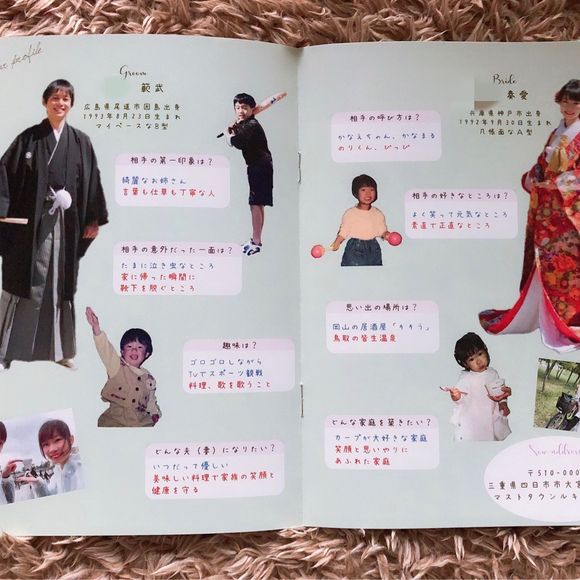 profile
Groom
範武
広島県尾道市因島出身
1993年8月23日生まれ
マイペースなB型
相手の第一印象は?
綺麗なお姉さん
言葉も仕草も丁寧な人
相手の意外だった一面は?
たまに泣き虫なところ
家に帰った瞬間に
靴下を脱ぐところ
趣味は?
ゴロゴロしながら
TVでスポーツ観戦
料理、歌を歌うこと
どんな夫(妻)になりたい?
いつだって優しい
美味しい料理で家族の笑顔と
健康を守る
Bride
奏愛
兵庫県神戸市出身
1992年9月30日生まれ
几帳面なA型
相手の呼び方は?
かなえちゃん、かなまる
のりくん、ぴっぴ
相手の好きなところは?
よく笑って元気なところ
素直で正直なところ
思い出の場所は?
岡山の居酒屋「うりう」
鳥取の皆生温泉
どんな家庭を築きたい?
カープが大好きな家庭
笑顔と思いやりに
あふれた家庭
New address
〒510-000
三重県四日市市大宮
マストタウンルキ